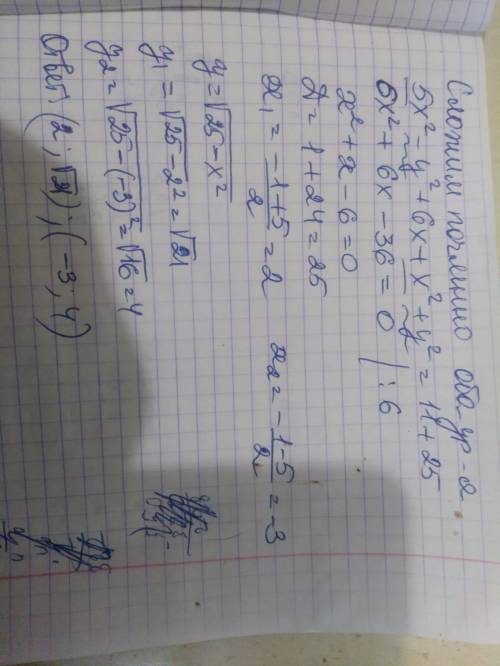 Сложим почленно оба ур-я
5x² - y² + 6x + x² + y² = 11 + 25
6x² + 6x - 36 = 0 | : 6
x² + x - 6 = 0
D = 1 + 24 = 25
x₁ = (-1+5)/2 = 2    x₂ = (-1-5)/2 = -3
y = √(25 - x²)
y₁ = √(25 - 2²) = √21
y₂ = √(25 - (-3)²) = √16 = 4
Ответ (2 ; √21) ; (-3 ; 4)